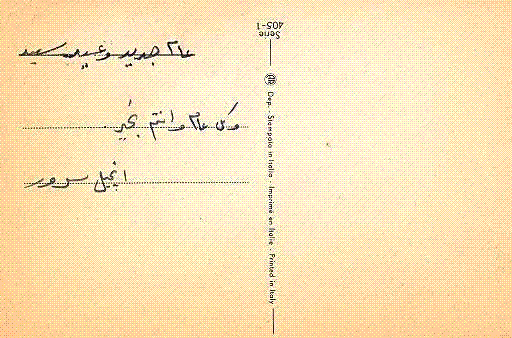 عام جديد وعيد سعيد
وكل عام وانتم بخير
انجيل سرور
Serie
405-1
Dep. - Stampato in Italia - Imprimé en Italie - Printed in Italy